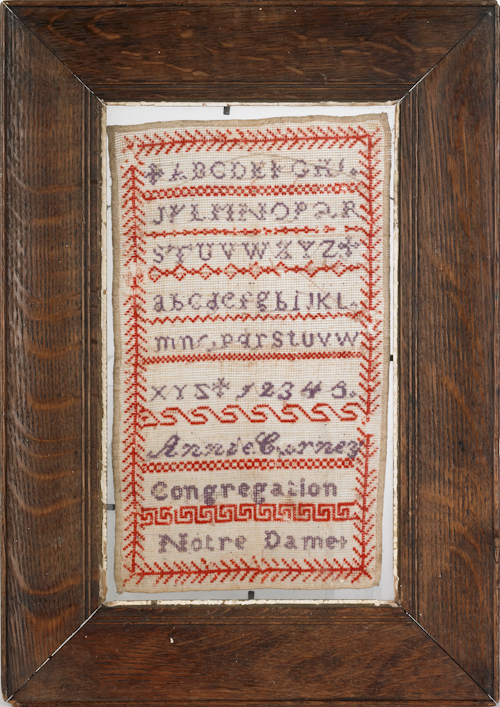 ABCDEFGHI.
JKLMNOPQR
STUVWXYZ
abcdefghijkl.
mnopqrstuvw
XYZ 12345.
Annie Corney
Congregation
Notre Dame